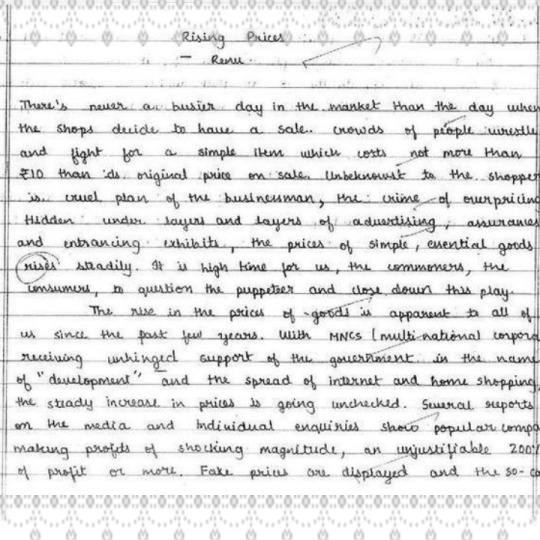 Rising Prices
- Renu
There's never a busier day in the market than the day when
the shops decide to have a sale.. crowds of people wrestle
and fight for a simple item which costs not more than
₹10 than its original price on sale. Unbeknownst to the shopper
is cruel plan of the businessman, the crime of overpricing
Hidden under layers and layers of advertising, assurances
and entrancing exhibits, the prices of simple, essential goods
rises steadily. It is high time for us, the commoners, the
consumers, to question the puppeteer and close down this play.
The rise in the prices of goods is apparent to all of
us since the past few years. With MNCs (multi national corpora
receiving unhinged support of the government in the name
of "development" and the spread of internet and home shopping,
the steady increase in prices is going unchecked. Several reports
on the media and individual enquiries show popular compa
making profits of shocking magnitude, an unjustifiable 200%
of profit or more. Fake prices are displayed and the so-ca